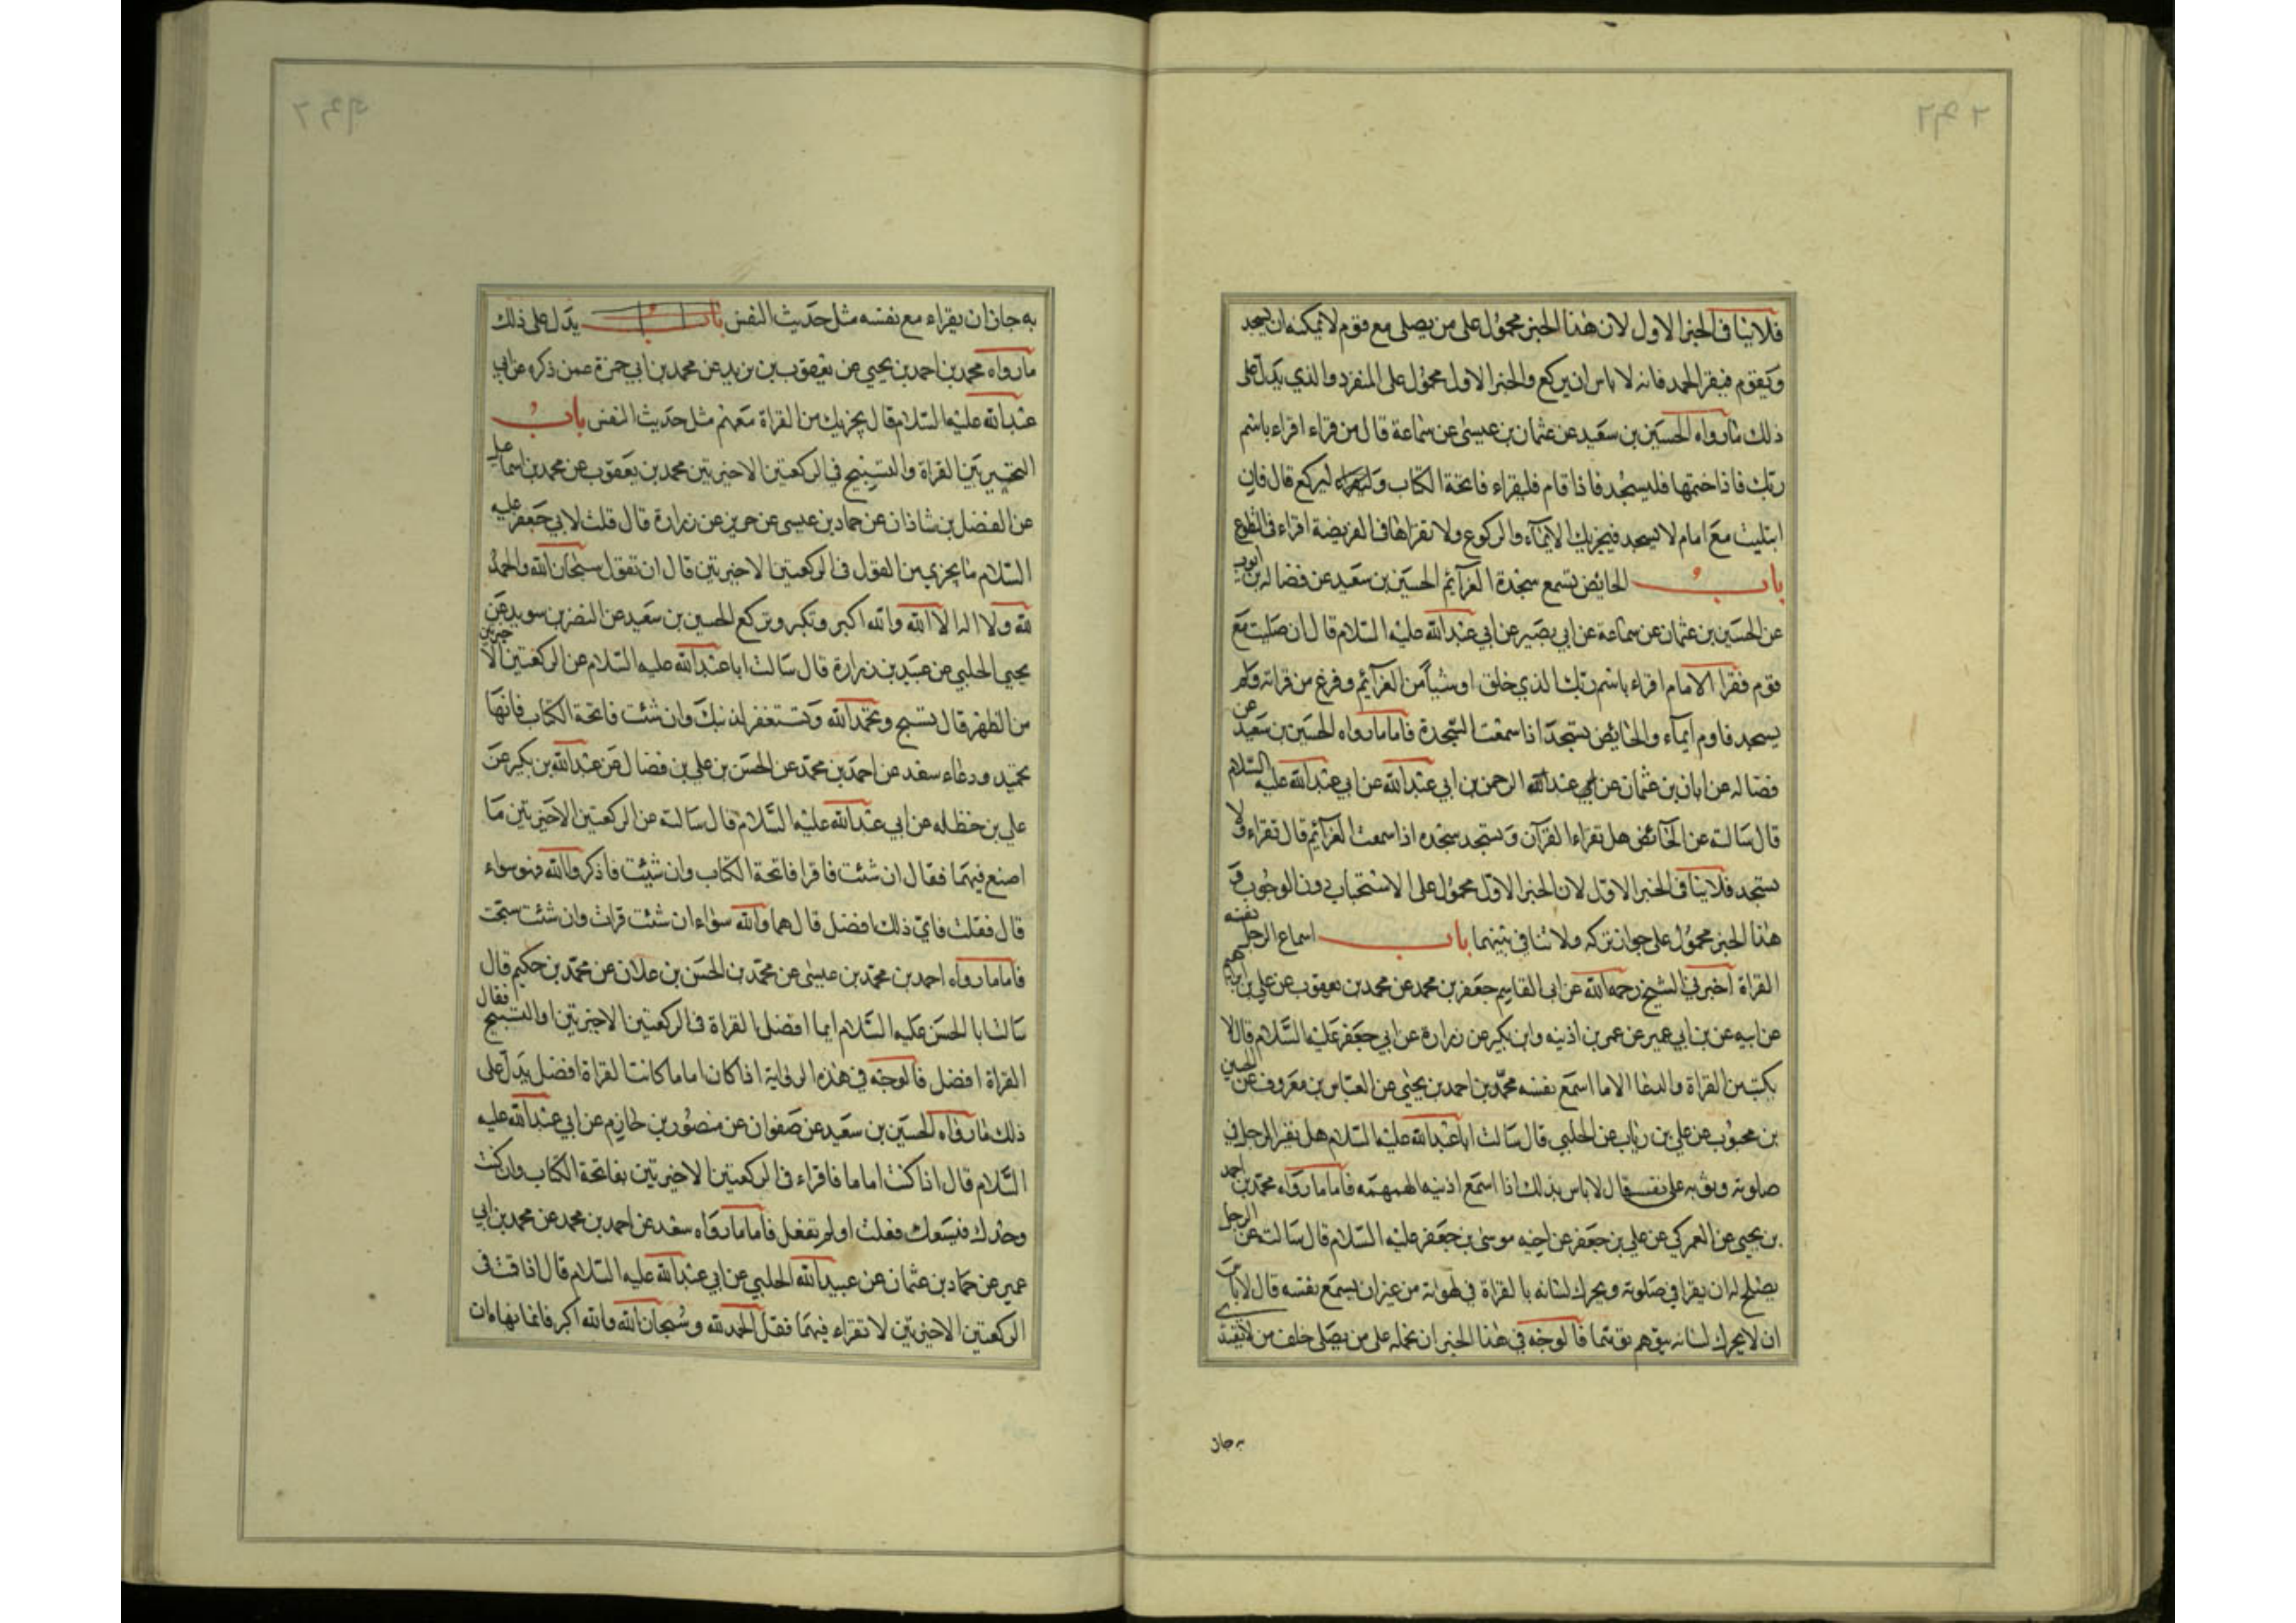 فلاينافى الخبر الاول لان هذا الخبر محمول على من يصلى مع قوم لايمكنه ان يسجد
ويقوم فيقرا الحمد فانه لا باس ان يركع والخبر الاول محمول على المنفرد والذي يدل على
ذلك ما رواه الحسين بن سعيد عن عثمان بن عيسى عن سماعة قال من قراء اقراء باسم
ربك فاذا ختمها فليسجد فاذا قام فليقراء فاتحة الكتاب وليركع قال فان
ابتليت مع امام لا يسجد فيجزيك الايماء والركوع ولا تقراها فى الفريضة اقراء فى التطوع
باب الحايض تسمع سجدة العزائم الحسين بن سعيد عن فضاله بن ايوب
عن الحسين بن عثمان عن سماعة عن ابي بصير عن ابي عبدالله عليه السلام قال ان صليت مع
قوم فقرا الامام اقراء باسم ربك الذي خلق او شيأ من العزائم وفرغ من قراته ولم
يسجد فاوم ايماء والحايض تسجد اذا سمعت السجدة فاما ما رواه الحسين بن سعيد عن
فضاله عن ابان بن عثمان عن عبد الرحمن بن ابي عبدالله عن ابي عبدالله عليه السلام
قال سالته عن الحائض هل تقراء القرآن وتسجد سجده اذا سمعت العزائم قال تقراء ولا
تسجد فلاينافى الخبر الاول لان الخبر الاول محمول على الاستحباب دون الوجوب و
هذا الخبر محمول على جواز تركه ولا تنافي بينهما باب اسماع الرجل نفسه
القراة اخبرني الشيخ رحمه الله عن ابى القاسم جعفر بن محمد عن محمد بن يعقوب عن علي بن ابراهيم
عن ابيه عن بن ابي عمير عن عمر بن اذينه وابن بكير عن زرارة عن ابي جعفر عليه السلام قال لا
يكتب من القراة والدعا الا ما اسمع نفسه محمد بن احمد بن يحيى عن العباس بن معروف عن الحسين
بن محبوب عن علي بن رياب عن الحلبي قال سالت ابا عبدالله عليه السلام هل يقرا الرجل في
صلوته وثوبه على نفسه قال لا باس بذلك اذا اسمع اذنيه الهمهمه فاما ما رواه محمد بن احمد
بن يحيى عن العمركي عن علي بن جعفر عن اخيه موسى بن جعفر عليه السلام قال سالته عن الرجل
يصلح له ان يقرا في صلوته ويحرك لسانه بالقراة في لهواته من غير ان يسمع نفسه قال لا باس
ان لا يحرك لسانه يتوهم توهما فالوجه في هذا الخبر ان نحمله على من يصلى خلف من لا يقتدى
به جاز
به جاز ان يقراء مع نفسه مثل حديث النفس يدل على ذلك
ما رواه محمد بن احمد بن يحيى عن يعقوب بن يزيد عن محمد بن ابي حمزة عمن ذكره عن ابي
عبدالله عليه السلام قال يجزيك من القراة معهم مثل حديث النفس باب
التخيير بين القراة والتسبيح في الركعتين الاخيرتين محمد بن يعقوب عن محمد بن اسماعيل
عن الفضل بن شاذان عن حماد بن عيسى عن حريز عن زرارة قال قلت لابي جعفر عليه
السلام ما يجزي من القول في الركعتين الاخيرتين قال ان تقول سبحان الله والحمد
لله ولا اله الا الله والله اكبر وتكبر وتركع الحسين بن سعيد عن النضر بن سويد عن
يحيى الحلبي عن عبيد بن زرارة قال سالت ابا عبدالله عليه السلام عن الركعتين الاخيرتين
من الظهر قال تسبح وتحمد الله وتستغفر لذنبك وان شئت فاتحة الكتاب فانها
تحميد ودعاء سعد عن احمد بن محمد عن الحسن بن علي بن فضال عن عبدالله بن بكير عن
علي بن حنظله عن ابي عبدالله عليه السلام قال سالته عن الركعتين الاخيرتين ما
اصنع فيهما فقال ان شئت فاقرا فاتحة الكتاب وان شئت فاذكر والله فهو سواء
قال فقلت فاي ذلك افضل قال هما والله سواء ان شئت قرات وان شئت سبحت
فاما ما رواه احمد بن محمد بن عيسى عن محمد بن الحسن بن علان عن محمد بن حكيم قال
سالت ابا الحسن عليه السلام ايما افضل القراة في الركعتين الاخيرتين او التسبيح فقال
القراة افضل فالوجه في هذه الرواية اذا كان اماما كانت القراة افضل يدل على
ذلك ما رواه الحسين بن سعيد عن صفوان عن منصور بن حازم عن ابي عبدالله عليه
السلام قال اذا كنت اماما فاقراء في الركعتين الاخيرتين بفاتحة الكتاب وان كنت
وحدك فيسعك فعلت او لم تفعل فاما ما رواه سعد عن احمد بن محمد عن محمد بن ابي
عمير عن حماد بن عثمان عن عبيدالله الحلبي عن ابي عبدالله عليه السلام قال اذا قمت في
الركعتين الاخيرتين لا تقراء فيهما فقل الحمد لله وسبحان الله والله اكبر فانما نهاه ان